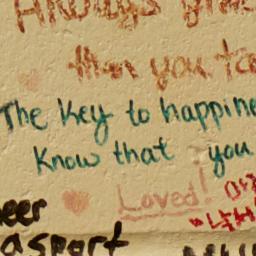 Always give
than you ta
The key to happine
Know that you
Loved!
eer
a sport